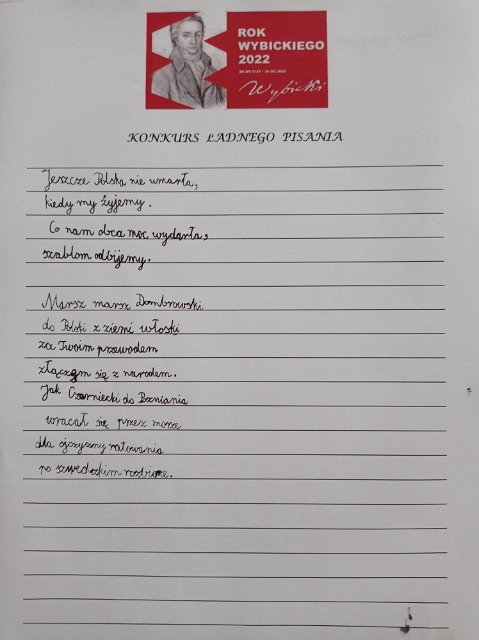 ROK
WYBICKIEGO
2022
Wybicki
KONKURS ŁADNEGO PISANIA
Jeszcze Polska nie umarła,
kiedy my żyjemy.
Co nam obca moc wydarła,
szablom odbijemy.
Marsz marsz Dombrowski
do Polski z ziemi włoski
za Twoim przewodem
złączem się z narodem.
Jak Czarniecki do Poznania
wracał się przez morze
dla ojczyzny ratowania
po szwedzkim rozbiorze.